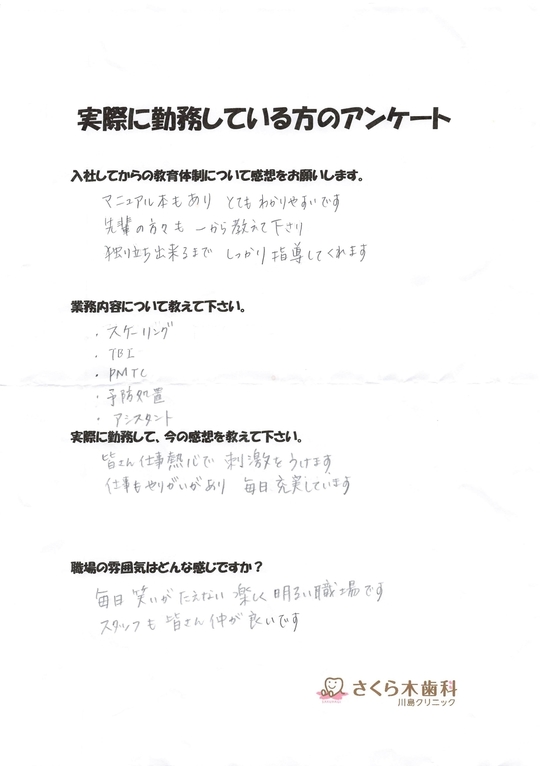 実際に勤務している方のアンケート
入社してからの教育体制について感想をお願いします。
マニュアル本もあり とてもわかりやすいです
先輩の方々も 一から教えて下さり
独り立ち出来るまで しっかり指導してくれます
業務内容について教えて下さい。
・スケーリング
・TBI
・PMTC
・予防処置
・アシスタント
実際に勤務して、今の感想を教えて下さい。
皆さん仕事熱心で 刺激をうけます
仕事もやりがいがあり 毎日充実しています
職場の雰囲気はどんな感じですか？
毎日 笑いがたえない 楽しく 明るい職場です
スタッフも 皆さん 仲が良いです
さくら木歯科
川島クリニック